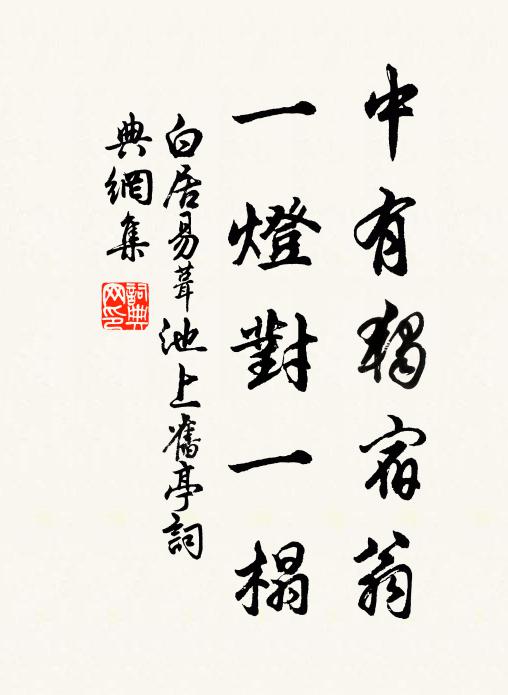 中有獨宿翁
一燈對一榻
白居易葺池上舊亭詞
典網集
詞典网印